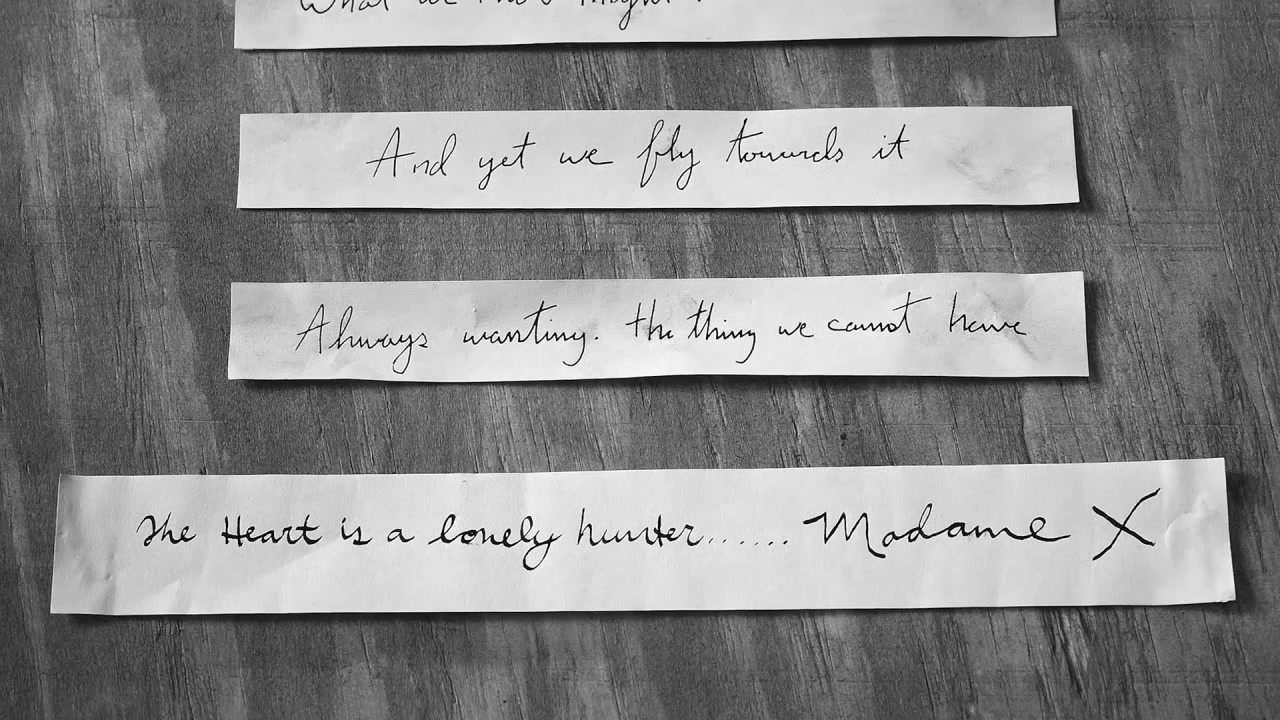 What we
And yet we fly towards it
Always wanting. the thing we cannot have
The Heart is a lonely hunter...... Madame X